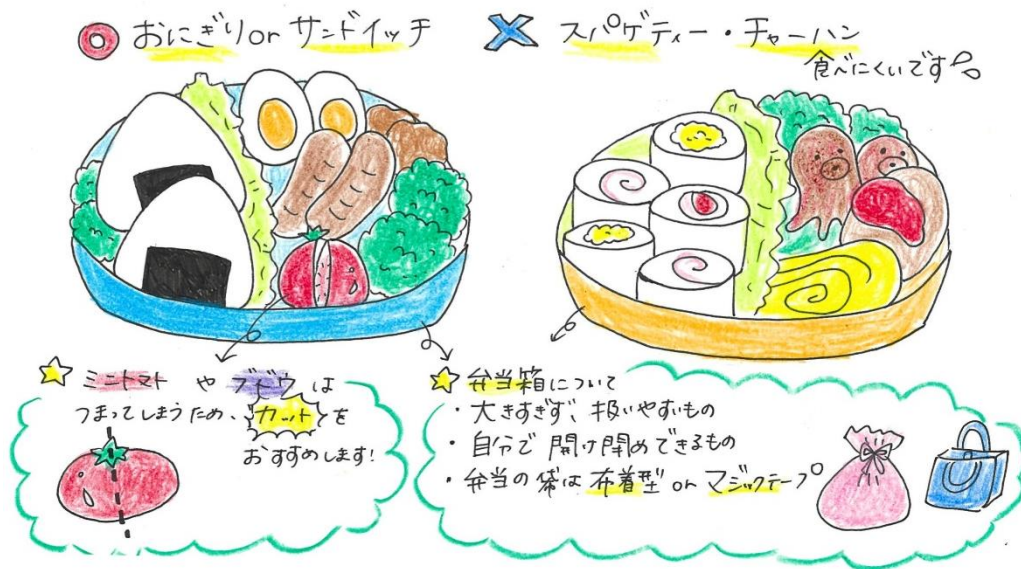 ◎ おにぎり or サンドイッチ
✕ スパゲティー・チャーハン
食べにくいです
☆ ミニトマト や ブドウ は
つまってしまうため、カットを
おすすめします!
☆ 弁当箱について
・大きすぎず、扱いやすいもの
・自分で 開け閉めできるもの
・弁当の袋は 布着型 or マジックテープ